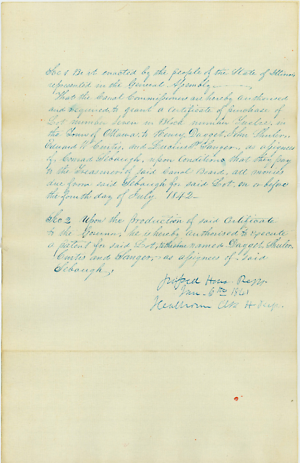 Sec 1 Be it enacted by the people of the State of Illinois
represented in the General Assembly
That the Canal Commissioners are hereby authorised
and required to grant a certificate of purchase of
Lot number seven in Block number twelve, in
the Town of Ottawa to Henry Daggett, John
Edward W. and as assignees
of Conrad Sebaugh, upon condition, that they pay
to the Treasurer of said Canal Board, all monies
due from said Sebaugh for said Lot, on or before
the fourth day of July 1842.
Sec 2 Upon the production of said Certificate
to the Governor, he is hereby authorised to execute
a patent for said Lot, to the said named Daggett,
and as assignees of said
Sebaugh.
passed House Reps
Jan. 6th 1841